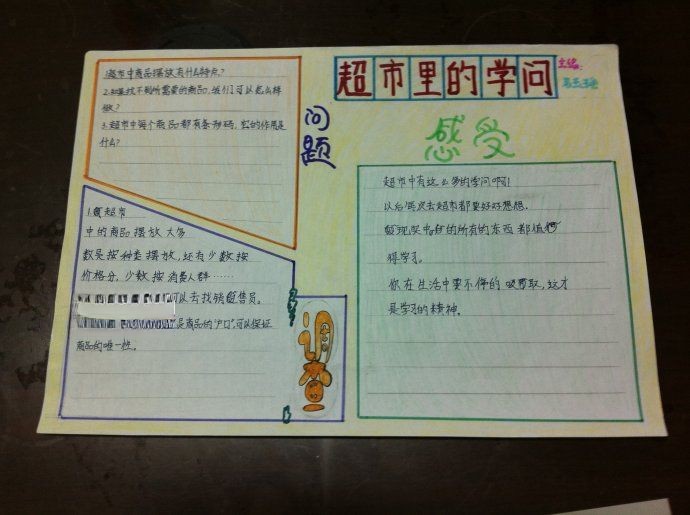 超市里的学问
主编：
1.超市中商品摆放有什么特点？
2.如果找不到所需要的商品，我们可以怎么样
做？
3.超市中每个商品都有条形码，它的作用是
什么？
问题
感受
超市中有这么多的学问啊！
以后每次去超市都要好好想想，
发现其中的所有的东西都值
得学习。
你在生活中要不停的吸取，这才
是学习的精神。
1.超市
中的商品摆放大多
数是按种类摆放，还有少数按
价格分，少数按消费人群……
可以去找销售员。
是商品的“户口”，可以保证
商品的唯一性。